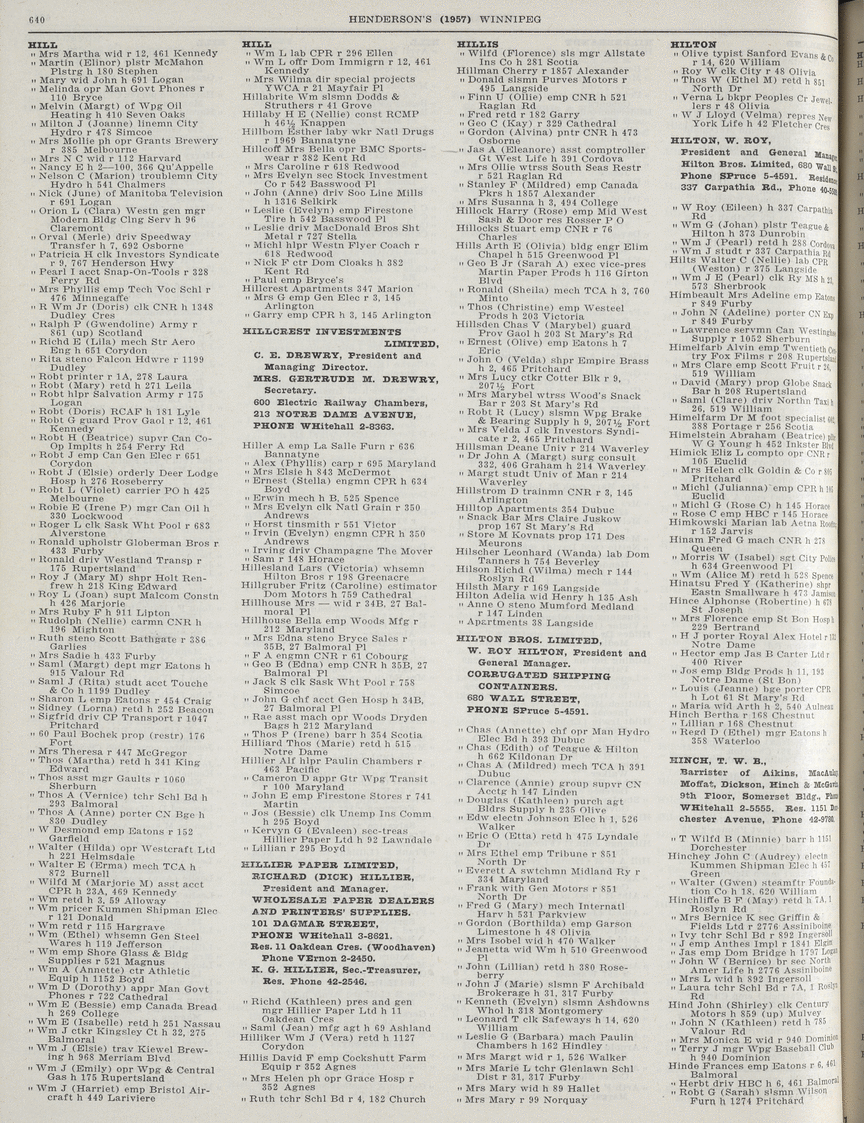 640
HENDERSON'S (1957) WINNIPEG
HILL
" Mrs Martha wid r 12, 461 Kennedy
" Martin (Elinor) plstr McMahon
Plstrg h 180 Stephen
" Mary wid John h 691 Logan
" Melinda opr Man Govt Phones r
110 Bryce
" Melvin (Margt) of Wpg Oil
Heating h 410 Seven Oaks
" Milton J (Joanne) linemn City
Hydro r 478 Simcoe
" Mrs Mollie ph opr Grants Brewery
r 385 Melbourne
" Mrs N C wid r 112 Harvard
" Nancy E h 2—100, 366 Qu'Appelle
" Nelson C (Marion) troublemn City
Hydro h 541 Chalmers
" Nick (June) of Manitoba Television
r 691 Logan
" Orion L (Clara) Westn gen mgr
Modern Bldg Clng Serv h 96
Claremont
" Orval (Merle) driv Speedway
Transfer h 7, 692 Osborne
" Patricia H clk Investors Syndicate
r 9, 767 Henderson Hwy
" Pearl I acct Snap-On-Tools r 328
Ferry Rd
" Mrs Phyllis emp Tech Voc Schl r
476 Minnegaffe
" R Wm Jr (Doris) clk CNR h 1348
Dudley Cres
" Ralph P (Gwendoline) Army r
861 (up) Scotland
" Richd E (Lila) mech Str Aero
Eng h 651 Corydon
" Rita steno Falcon Hdwre r 1199
Dudley
" Robt printer r 1A, 278 Laura
" Robt (Mary) retd h 271 Leila
" Robt hlpr Salvation Army r 175
Logan
" Robt (Doris) RCAF h 181 Lyle
" Robt G guard Prov Gaol r 12, 461
Kennedy
" Robt H (Beatrice) supvr Can Co-
Op Implts h 254 Ferry Rd
" Robt J emp Can Gen Elec r 651
Corydon
" Robt J (Elsie) orderly Deer Lodge
Hosp h 276 Roseberry
" Robt L (Violet) carrier PO h 425
Melbourne
" Robie E (Irene P) mgr Can Oil h
330 Lockwood
" Roger L clk Sask Wht Pool r 683
Alverstone
" Ronald upholstr Globerman Bros r
433 Furby
" Ronald driv Westland Transp r
175 Rupertsland
" Roy J (Mary M) shpr Holt Ren-
frew h 218 King Edward
" Roy L (Joan) supt Malcom Constn
h 426 Marjorie
" Mrs Ruby F h 911 Lipton
" Rudolph (Nellie) carmn CNR h
196 Mighton
" Ruth steno Scott Bathgate r 386
Garlies
" Mrs Sadie h 433 Furby
" Saml (Margt) dept mgr Eatons h
915 Valour Rd
" Saml J (Rita) studt acct Touche
& Co h 1199 Dudley
" Sharon L emp Eatons r 454 Craig
" Sidney (Lorna) retd h 252 Beacon
" Sigfrid driv CP Transport r 1047
Pritchard
" 60 Paul Bochek prop (restr) 176
Fort
" Mrs Theresa r 447 McGregor
" Thos (Martha) retd h 341 King
Edward
" Thos asst mgr Gaults r 1060
Sherburn
" Thos A (Vernice) tchr Schl Bd h
293 Balmoral
" Thos A (Anne) porter CN Bge h
830 Dudley
" W Desmond emp Eatons r 152
Garfield
" Walter (Hilda) opr Westcraft Ltd
h 221 Helmsdale
" Walter E (Erma) mech TCA h
872 Burnell
" Wilfd M (Marjorie M) asst acct
CPR h 23A, 469 Kennedy
" Wm retd h 3, 59 Alloway
" Wm pricer Kummen Shipman Elec
r 121 Donald
" Wm retd r 115 Hargrave
" Wm (Ethel) whsemn Gen Steel
Wares h 119 Jefferson
" Wm emp Shore Glass & Bldg
Supplies r 521 Magnus
" Wm A (Annette) ctr Athletic
Equip h 1152 Boyd
" Wm D (Dorothy) appr Man Govt
Phones r 722 Cathedral
" Wm E (Bessie) emp Canada Bread
h 269 College
" Wm E (Isabelle) retd h 251 Nassau
" Wm J ctkr Kingsley Ct h 32, 275
Balmoral
" Wm J (Elsie) trav Kiewel Brew-
ing h 968 Merriam Blvd
" Wm J (Emily) opr Wpg & Central
Gas h 175 Rupertsland
" Wm J (Harriet) emp Bristol Air-
craft h 449 Lariviere
HILL
" Wm L lab CPR r 296 Ellen
" Wm L offr Dom Immigrn r 12, 461
Kennedy
" Mrs Wilma dir special projects
YWCA r 21 Mayfair Pl
Hillabrite Wm slsmn Dodds &
Struthers r 41 Grove
Hillaby H E (Nellie) const RCMP
h 46½ Knappen
Hillbom Esther laby wkr Natl Drugs
r 1969 Bannatyne
Hillcoff Mrs Bella opr BMC Sports-
wear r 382 Kent Rd
" Mrs Caroline r 618 Redwood
" Mrs Evelyn sec Stock Investment
Co r 542 Basswood Pl
" John (Anne) driv Soo Line Mills
h 1316 Selkirk
" Leslie (Evelyn) emp Firestone
Tire h 542 Basswood Pl
" Leslie driv MacDonald Bros Sht
Metal r 727 Stella
" Michl hlpr Westn Flyer Coach r
618 Redwood
" Nick F ctr Dom Cloaks h 382
Kent Rd
" Paul emp Bryce's
Hillcrest Apartments 347 Marion
" Mrs G emp Gen Elec r 3, 145
Arlington
" Garry emp CPR h 3, 145 Arlington
HILLCREST INVESTMENTS
LIMITED,
C. E. DREWRY, President and
Managing Director.
MRS. GERTRUDE M. DREWRY,
Secretary.
600 Electric Railway Chambers,
213 NOTRE DAME AVENUE,
PHONE WHitehall 2-8363.
Hiller A emp La Salle Furn r 636
Bannatyne
" Alex (Phyllis) carp r 695 Maryland
" Mrs Elsie h 843 McDermot
" Ernest (Stella) engmn CPR h 634
Boyd
" Erwin mech h B, 525 Spence
" Mrs Evelyn clk Natl Grain r 350
Andrews
" Horst tinsmith r 551 Victor
" Irvin (Evelyn) engmn CPR h 350
Andrews
" Irving driv Champagne The Mover
" Sam r 148 Horace
Hillesland Lars (Victoria) whsemn
Hilton Bros r 198 Greenacre
Hillgruber Fritz (Caroline) estimator
Dom Motors h 759 Cathedral
Hillhouse Mrs — wid r 34B, 27 Bal-
moral Pl
Hillhouse Bella emp Woods Mfg r
212 Maryland
" Mrs Edna steno Bryce Sales r
35B, 27 Balmoral Pl
" F A engmn CNR r 61 Cobourg
" Geo B (Edna) emp CNR h 35B, 27
Balmoral Pl
" Jack S clk Sask Wht Pool r 758
Simcoe
" John G chf acct Gen Hosp h 34B,
27 Balmoral Pl
" Rae asst mach opr Woods Dryden
Bags h 212 Maryland
" Thos P (Irene) barr h 354 Scotia
Hilliard Thos (Marie) retd h 515
Notre Dame
Hillier Alf hlpr Paulin Chambers r
463 Pacific
" Cameron D appr Gtr Wpg Transit
r 100 Maryland
" John E emp Firestone Stores r 741
Martin
" Jos (Bessie) clk Unemp Ins Comm
h 295 Boyd
" Kervyn G (Evaleen) sec-treas
Hillier Paper Ltd h 92 Lawndale
" Lillian r 295 Boyd
HILLIER PAPER LIMITED,
RICHARD (DICK) HILLIER,
President and Manager.
WHOLESALE PAPER DEALERS
AND PRINTERS' SUPPLIES.
101 DAGMAR STREET,
PHONE WHitehall 3-8621.
Res. 11 Oakdean Cres. (Woodhaven)
Phone VErnon 2-2450.
K. G. HILLIER, Sec.-Treasurer,
Res. Phone 42-2546.
" Richd (Kathleen) pres and gen
mgr Hillier Paper Ltd h 11
Oakdean Cres
" Saml (Jean) mfg agt h 69 Ashland
Hilliker Wm J (Vera) retd h 1127
Corydon
Hillis David F emp Cockshutt Farm
Equip r 352 Agnes
" Mrs Helen ph opr Grace Hosp r
352 Agnes
" Ruth tchr Schl Bd r 4, 182 Church
HILLIS
" Wilfd (Florence) sls mgr Allstate
Ins Co h 281 Scotia
Hillman Cherry r 1857 Alexander
" Donald slsmn Purves Motors r
495 Langside
" Finn U (Ollie) emp CNR h 521
Raglan Rd
" Fred retd r 182 Garry
" Geo C (Kay) r 329 Cathedral
" Gordon (Alvina) pntr CNR h 473
Osborne
" Jas A (Eleanore) asst comptroller
Gt West Life h 391 Cordova
" Mrs Ollie wtrss South Seas Restr
r 521 Raglan Rd
" Stanley F (Mildred) emp Canada
Pkrs h 1857 Alexander
" Mrs Susanna h 3, 494 College
Hillock Harry (Rose) emp Mid West
Sash & Door res Rosser P O
Hillocks Stuart emp CNR r 76
Charles
Hills Arth E (Olivia) bldg engr Elim
Chapel h 515 Greenwood Pl
" Geo B Jr (Sarah A) exec vice-pres
Martin Paper Prods h 116 Girton
Blvd
" Ronald (Sheila) mech TCA h 3, 760
Minto
" Thos (Christine) emp Westeel
Prods h 203 Victoria
Hillsden Chas V (Marybel) guard
Prov Gaol h 203 St Mary's Rd
" Ernest (Olive) emp Eatons h 7
Eric
" John O (Velda) shpr Empire Brass
h 2, 465 Pritchard
" Mrs Lucy ctkr Cotter Blk r 9,
207½ Fort
" Mrs Marybel wtrss Wood's Snack
Bar r 203 St Mary's Rd
" Robt R (Lucy) slsmn Wpg Brake
& Bearing Supply h 9, 207½ Fort
" Mrs Velda J clk Investors Syndi-
cate r 2, 465 Pritchard
Hillsman Deane Univ r 214 Waverley
" Dr John A (Margt) surg consult
332, 406 Graham h 214 Waverley
" Margt studt Univ of Man r 214
Waverley
Hillstrom D trainmn CNR r 3, 145
Arlington
Hilltop Apartments 354 Dubuc
" Snack Bar Mrs Claire Juskow
prop 167 St Mary's Rd
" Store M Kovnats prop 171 Des
Meurons
Hilscher Leonhard (Wanda) lab Dom
Tanners h 754 Beverley
Hilson Richd (Wilma) mech r 144
Roslyn Rd
Hilsth Mary r 169 Langside
Hilton Adelia wid Henry h 135 Ash
" Anne O steno Mumford Medland
r 147 Linden
" Apartments 38 Langside
HILTON BROS. LIMITED,
W. ROY HILTON, President and
General Manager.
CORRUGATED SHIPPING
CONTAINERS.
680 WALL STREET,
PHONE SPruce 5-4591.
" Chas (Annette) chf opr Man Hydro
Elec Bd h 393 Dubuc
" Chas (Edith) of Teague & Hilton
h 662 Kildonan Dr
" Chas A (Mildred) mech TCA h 391
Dubuc
" Clarence (Annie) group supvr CN
Acctg h 147 Linden
" Douglas (Kathleen) purch agt
Bldrs Supply h 235 Olive
" Edw electn Johnson Elec h 1, 526
Walker
" Eric O (Etta) retd h 475 Lyndale
Dr
" Mrs Ethel emp Tribune r 851
North Dr
" Everett A swtchmn Midland Ry r
334 Maryland
" Frank with Gen Motors r 851
North Dr
" Fred G (Mary) mech Internatl
Harv h 531 Parkview
" Gordon (Borthilda) emp Garson
Limestone h 48 Olivia
" Mrs Isobel wid h 470 Walker
" Jeanetta wid Wm h 510 Greenwood
Pl
" John (Lillian) retd h 380 Rose-
berry
" John J (Marie) slsmn F Archibald
Brokerage h 31, 317 Furby
" Kenneth (Evelyn) slsmn Ashdowns
Whol h 318 Montgomery
" Leonard T clk Safeways h 14, 620
William
" Leslie G (Barbara) mach Paulin
Chambers h 162 Hindley
" Mrs Margt wid r 1, 526 Walker
" Mrs Marie L tchr Glenlawn Schl
Dist r 31, 317 Furby
" Mrs Mary wid h 89 Hallet
" Mrs Mary r 99 Norquay
HILTON
" Olive typist Sanford Evans & Co
r 14, 620 William
" Roy W clk City r 48 Olivia
" Thos W (Ethel M) retd h 851
North Dr
" Verna L bkpr Peoples Cr Jewel-
lers r 48 Olivia
" W J Lloyd (Velma) repres New
York Life h 42 Fletcher Cres
HILTON, W. ROY,
President and General Manager
Hilton Bros. Limited, 680 Wall
Phone SPruce 5-4591. Residence
337 Carpathia Rd., Phone
" W Roy (Eileen) h 337 Carpathia
Rd
" Wm G (Johan) plstr Teague &
Hilton h 373 Dunrobin
" Wm J (Pearl) retd h 288 Cordova
" Wm J studt r 337 Carpathia Rd
Hilts Walter C (Nellie) lab CPR
(Weston) r 375 Langside
" Wm J E (Pearl) clk Ry MS h 21,
573 Sherbrook
Himbeault Mrs Adeline emp Eatons
r 849 Furby
" John N (Adeline) porter CN Exp
r 849 Furby
" Lawrence servmn Can Westinghse
Supply r 1052 Sherburn
Himelfarb Alvin emp Twentieth Cen-
try Fox Films r 208 Rupertsland
" Mrs Clare emp Scott Fruit r 26,
519 William
" David (Mary) prop Globe Snack
Bar h 208 Rupertsland
" Saml (Clare) driv North Taxi h
26, 519 William
Himelfarm Dr M foot specialist
388 Portage r 256 Scotia
Himelstein Abraham (Beatrice)
W G Young h 452 Inkster Blvd
Himick Eliz L compto opr CNR r
105 Euclid
" Mrs Helen clk Goldin & Co r 806
Pritchard
" Michl (Julianna) emp CPR h 105
Euclid
" Michl G (Rose C) h 145 Horace
" Rose C emp HBC r 145 Horace
Himkowski Marian lab Aetna
r 152 Jarvis
Hinam Fred G mach CNR h 278
Queen
" Morris W (Isabel) sgt City Police
h 634 Greenwood Pl
" Wm (Alice M) retd h 528 Spence
Hinatsu Fred Y (Katherine) shpr
Eastn Smallware h 473 Jamison
Hince Alphonse (Robertine) h 678
St Joseph
" Mrs Florence emp St Bon Hosp h
229 Bertrand
" H J porter Royal Alex Hotel r
Notre Dame
" Hector emp Jas B Carter Ltd r
400 River
" Jos emp Bldg Prods h 11, 192
Notre Dame (St Bon)
" Louis (Jeanne) bge porter CPR
h Lot 61 St Mary's Rd
" Maria wid Arth h 2, 540 Aulneau
Hinch Bertha r 168 Chestnut
" Lillian r 168 Chestnut
" Regd D (Ethel) mgr Eatons h
358 Waterloo
HINCH, T. W. B.,
Barrister of Aikins, MacAulay
Moffat, Dickson, Hinch & McGavin
9th Floor, Somerset Bldg., Phone
WHitehall 2-5555. Res. 1151 Dor-
chester Avenue, Phone 42-9780.
" T Wilfd B (Minnie) barr h 1151
Dorchester
Hinchey John C (Audrey) electn
Kummen Shipman Elec h 457
Green
" Walter (Gwen) steamftr Founda-
tion Co h 18, 620 William
Hinchliffe B F (May) retd h 7A, 1
Roslyn Rd
" Mrs Bernice K sec Griffin &
Fields Ltd r 2776 Assiniboine
" Ivy tchr Schl Bd r 892 Ingersoll
" J emp Anthes Impl r 1841 Elgin
" Jas emp Dom Bridge h 1797 Logan
" John W (Bernice) br sec North
Amer Life h 2776 Assiniboine
" Mrs L wid h 892 Ingersoll
" Laura tchr Schl Bd r 7A, 1 Roslyn
Rd
Hind John (Shirley) clk Century
Motors h 859 (up) Mulvey
" John N (Kathleen) retd h 785
Valour Rd
" Mrs Monica E wid r 940 Dominion
" Terry J mgr Wpg Baseball Club
h 940 Dominion
Hinde Frances emp Eatons r 6, 461
Balmoral
" Herbt driv HBC h 6, 461 Balmoral
" Robt G (Sarah) slsmn Wilson
Furn h 1274 Pritchard